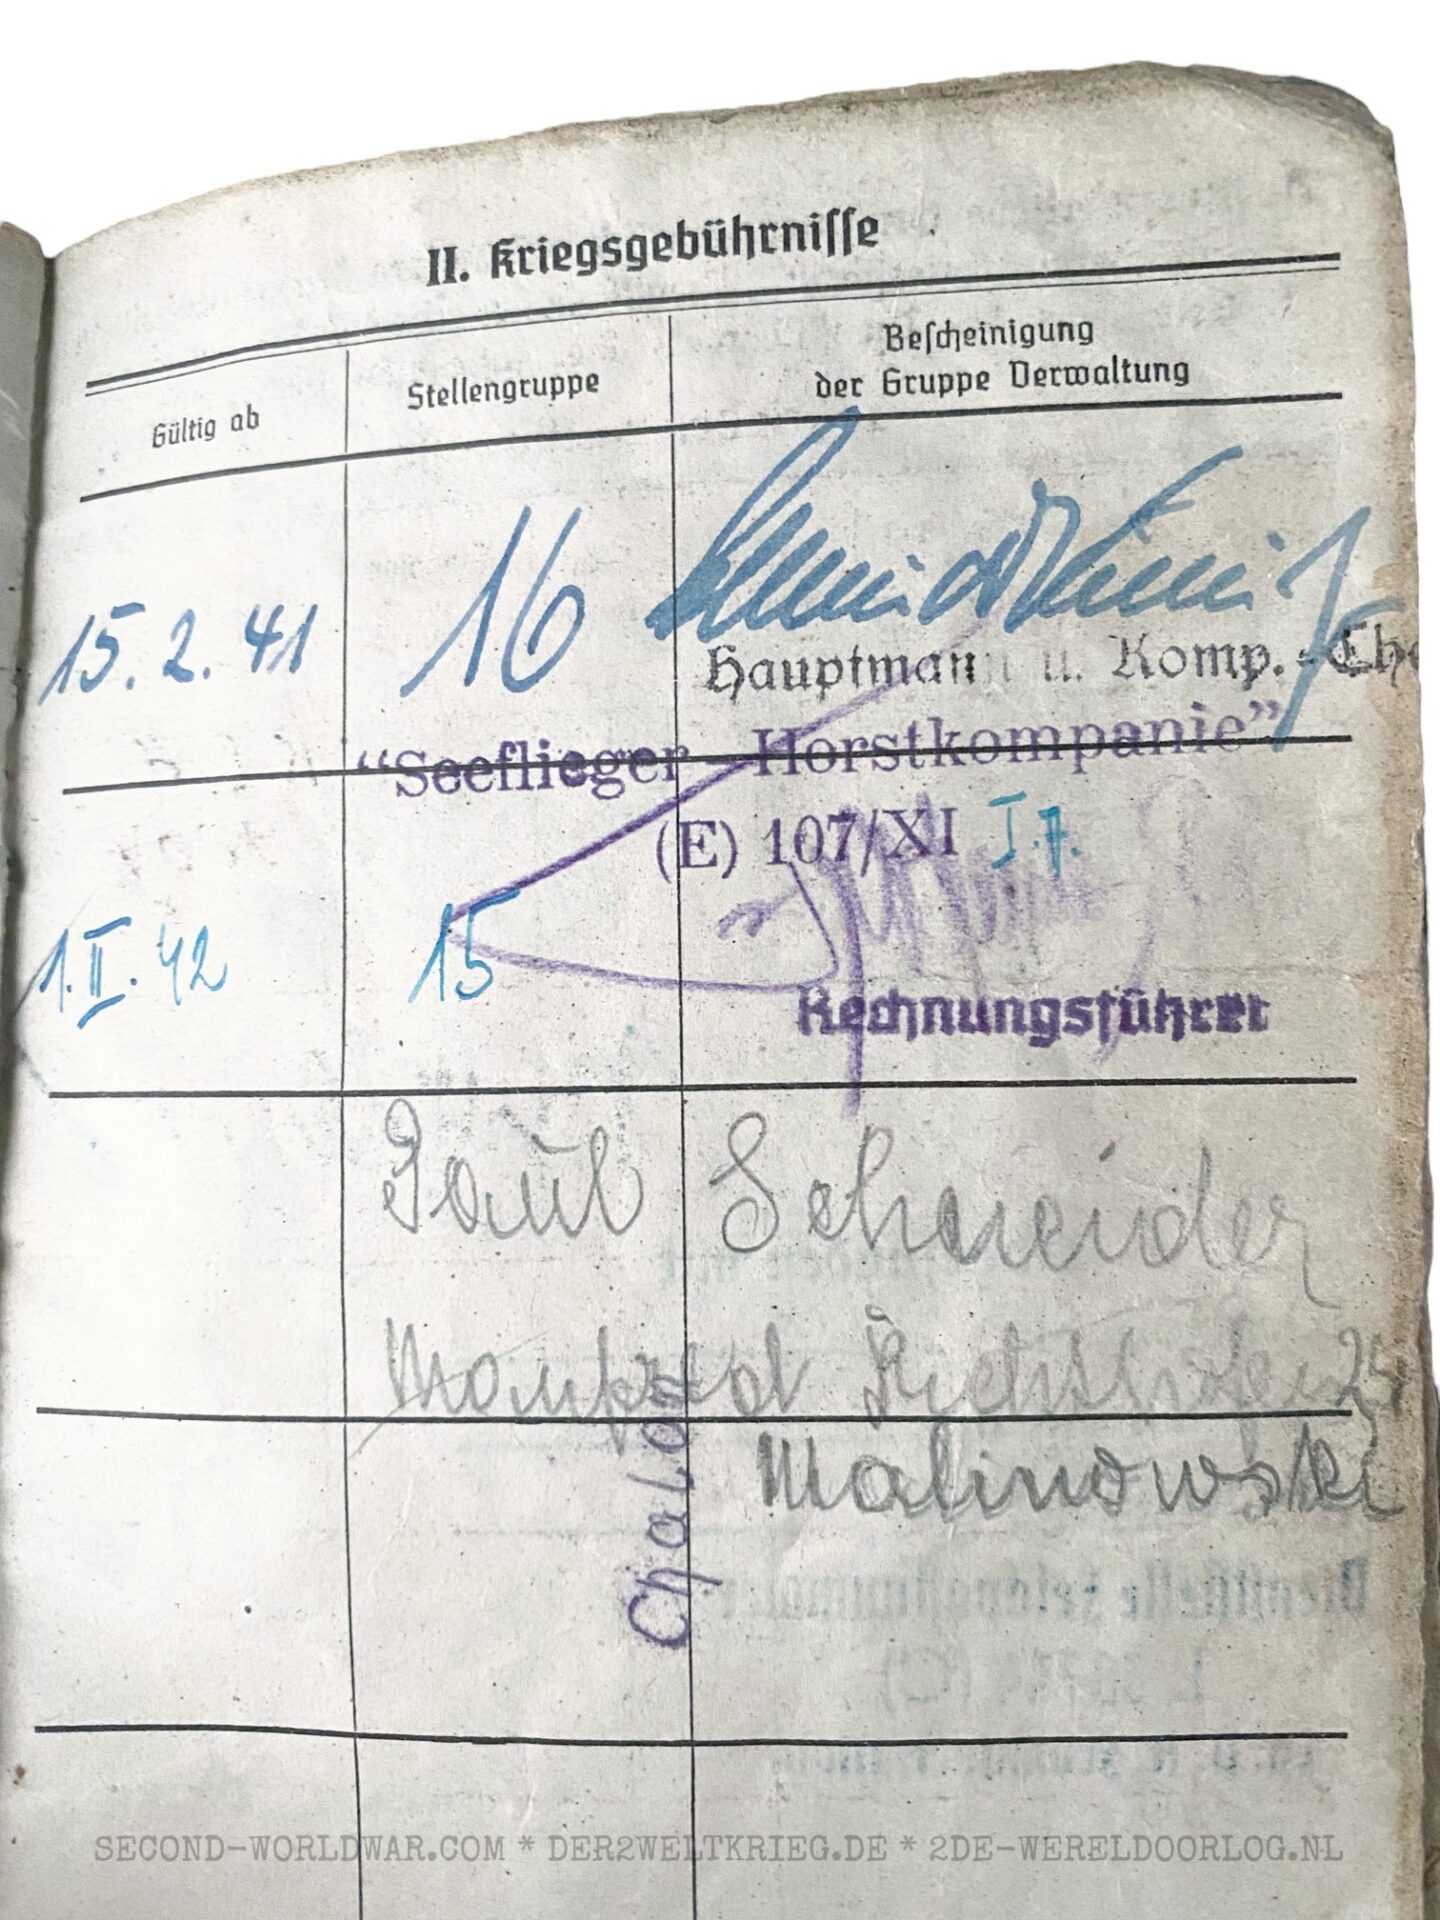 II. Kriegsgebührnisse
Gültig ab
Stellengruppe
Bescheinigung
der Gruppe Verwaltung
15.2.41
16
Hauptmann u. Komp.-Che
"Seeflieger - Horstkompanie"
(E) 107/XI I.7.
1.II.42
15
Rechnungsführer
Paul Schneider
Manfred
Malinowski
Chalon
SECOND-WORLDWAR.COM * DER2WELTKRIEG.DE * 2DE-WERELDOORLOG.NL